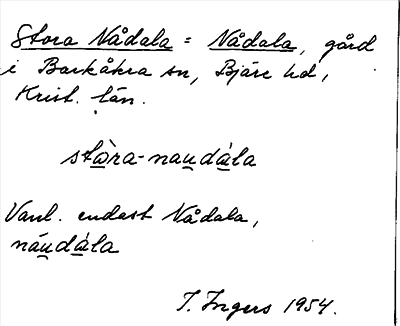 Stora Nådala = Nådala, gård
i Barkåkra sn, Bjäre hd,
Krist. län.
stòra-naudála
Vanl. endast Nådala,
náudála
I. Ingers 1954.